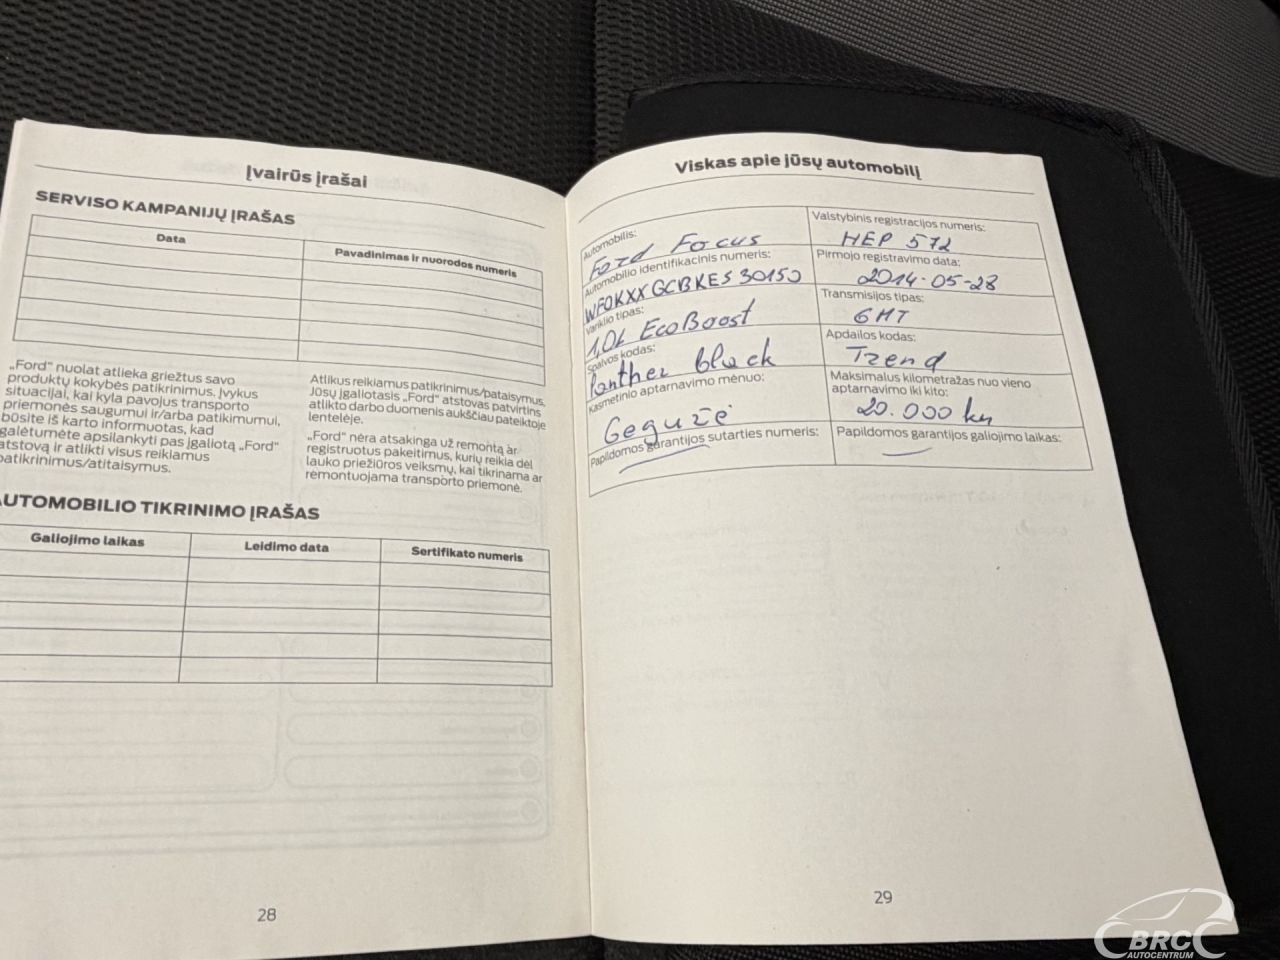 Įvairūs įrašai
SERVISO KAMPANIJŲ ĮRAŠAS
Data
Pavadinimas ir nuorodos numeris
„Ford“ nuolat atlieka griežtus savo
produktų kokybės patikrinimus. Įvykus
situacijai, kai kyla pavojus transporto
priemonės saugumui ir/arba patikimumui,
būsite iš karto informuotas, kad
galėtumėte apsilankyti pas įgaliotą „Ford“
atstovą ir atlikti visus reikiamus
patikrinimus/atitaisymus.
Atlikus reikiamus patikrinimus/pataisymus,
Jūsų įgaliotasis „Ford“ atstovas patvirtins
atlikto darbo duomenis aukščiau pateiktoje
lentelėje.
„Ford“ nėra atsakinga už remontą ar
registruotus pakeitimus, kurių reikia dėl
lauko priežiūros veiksmų, kai tikrinama ar
remontuojama transporto priemonė.
AUTOMOBILIO TIKRINIMO ĮRAŠAS
Galiojimo laikas
Leidimo data
Sertifikato numeris
28
Viskas apie jūsų automobilį
Automobilis:
Ford Focus
Valstybinis registracijos numeris:
HEP 572
Automobilio identifikacinis numeris:
WF0KXXGCBKES30150
Pirmojo registravimo data:
2014-05-28
Variklio tipas:
1,0L EcoBoost
Transmisijos tipas:
6MT
Spalvos kodas:
Panther black
Apdailos kodas:
Trend
Kasmetinio aptarnavimo mėnuo:
Gegužė
Maksimalus kilometražas nuo vieno
aptarnavimo iki kito:
20.000 km
Papildomos garantijos sutarties numeris:
Papildomos garantijos galiojimo laikas:
29
BRC
AUTOCENTRUM